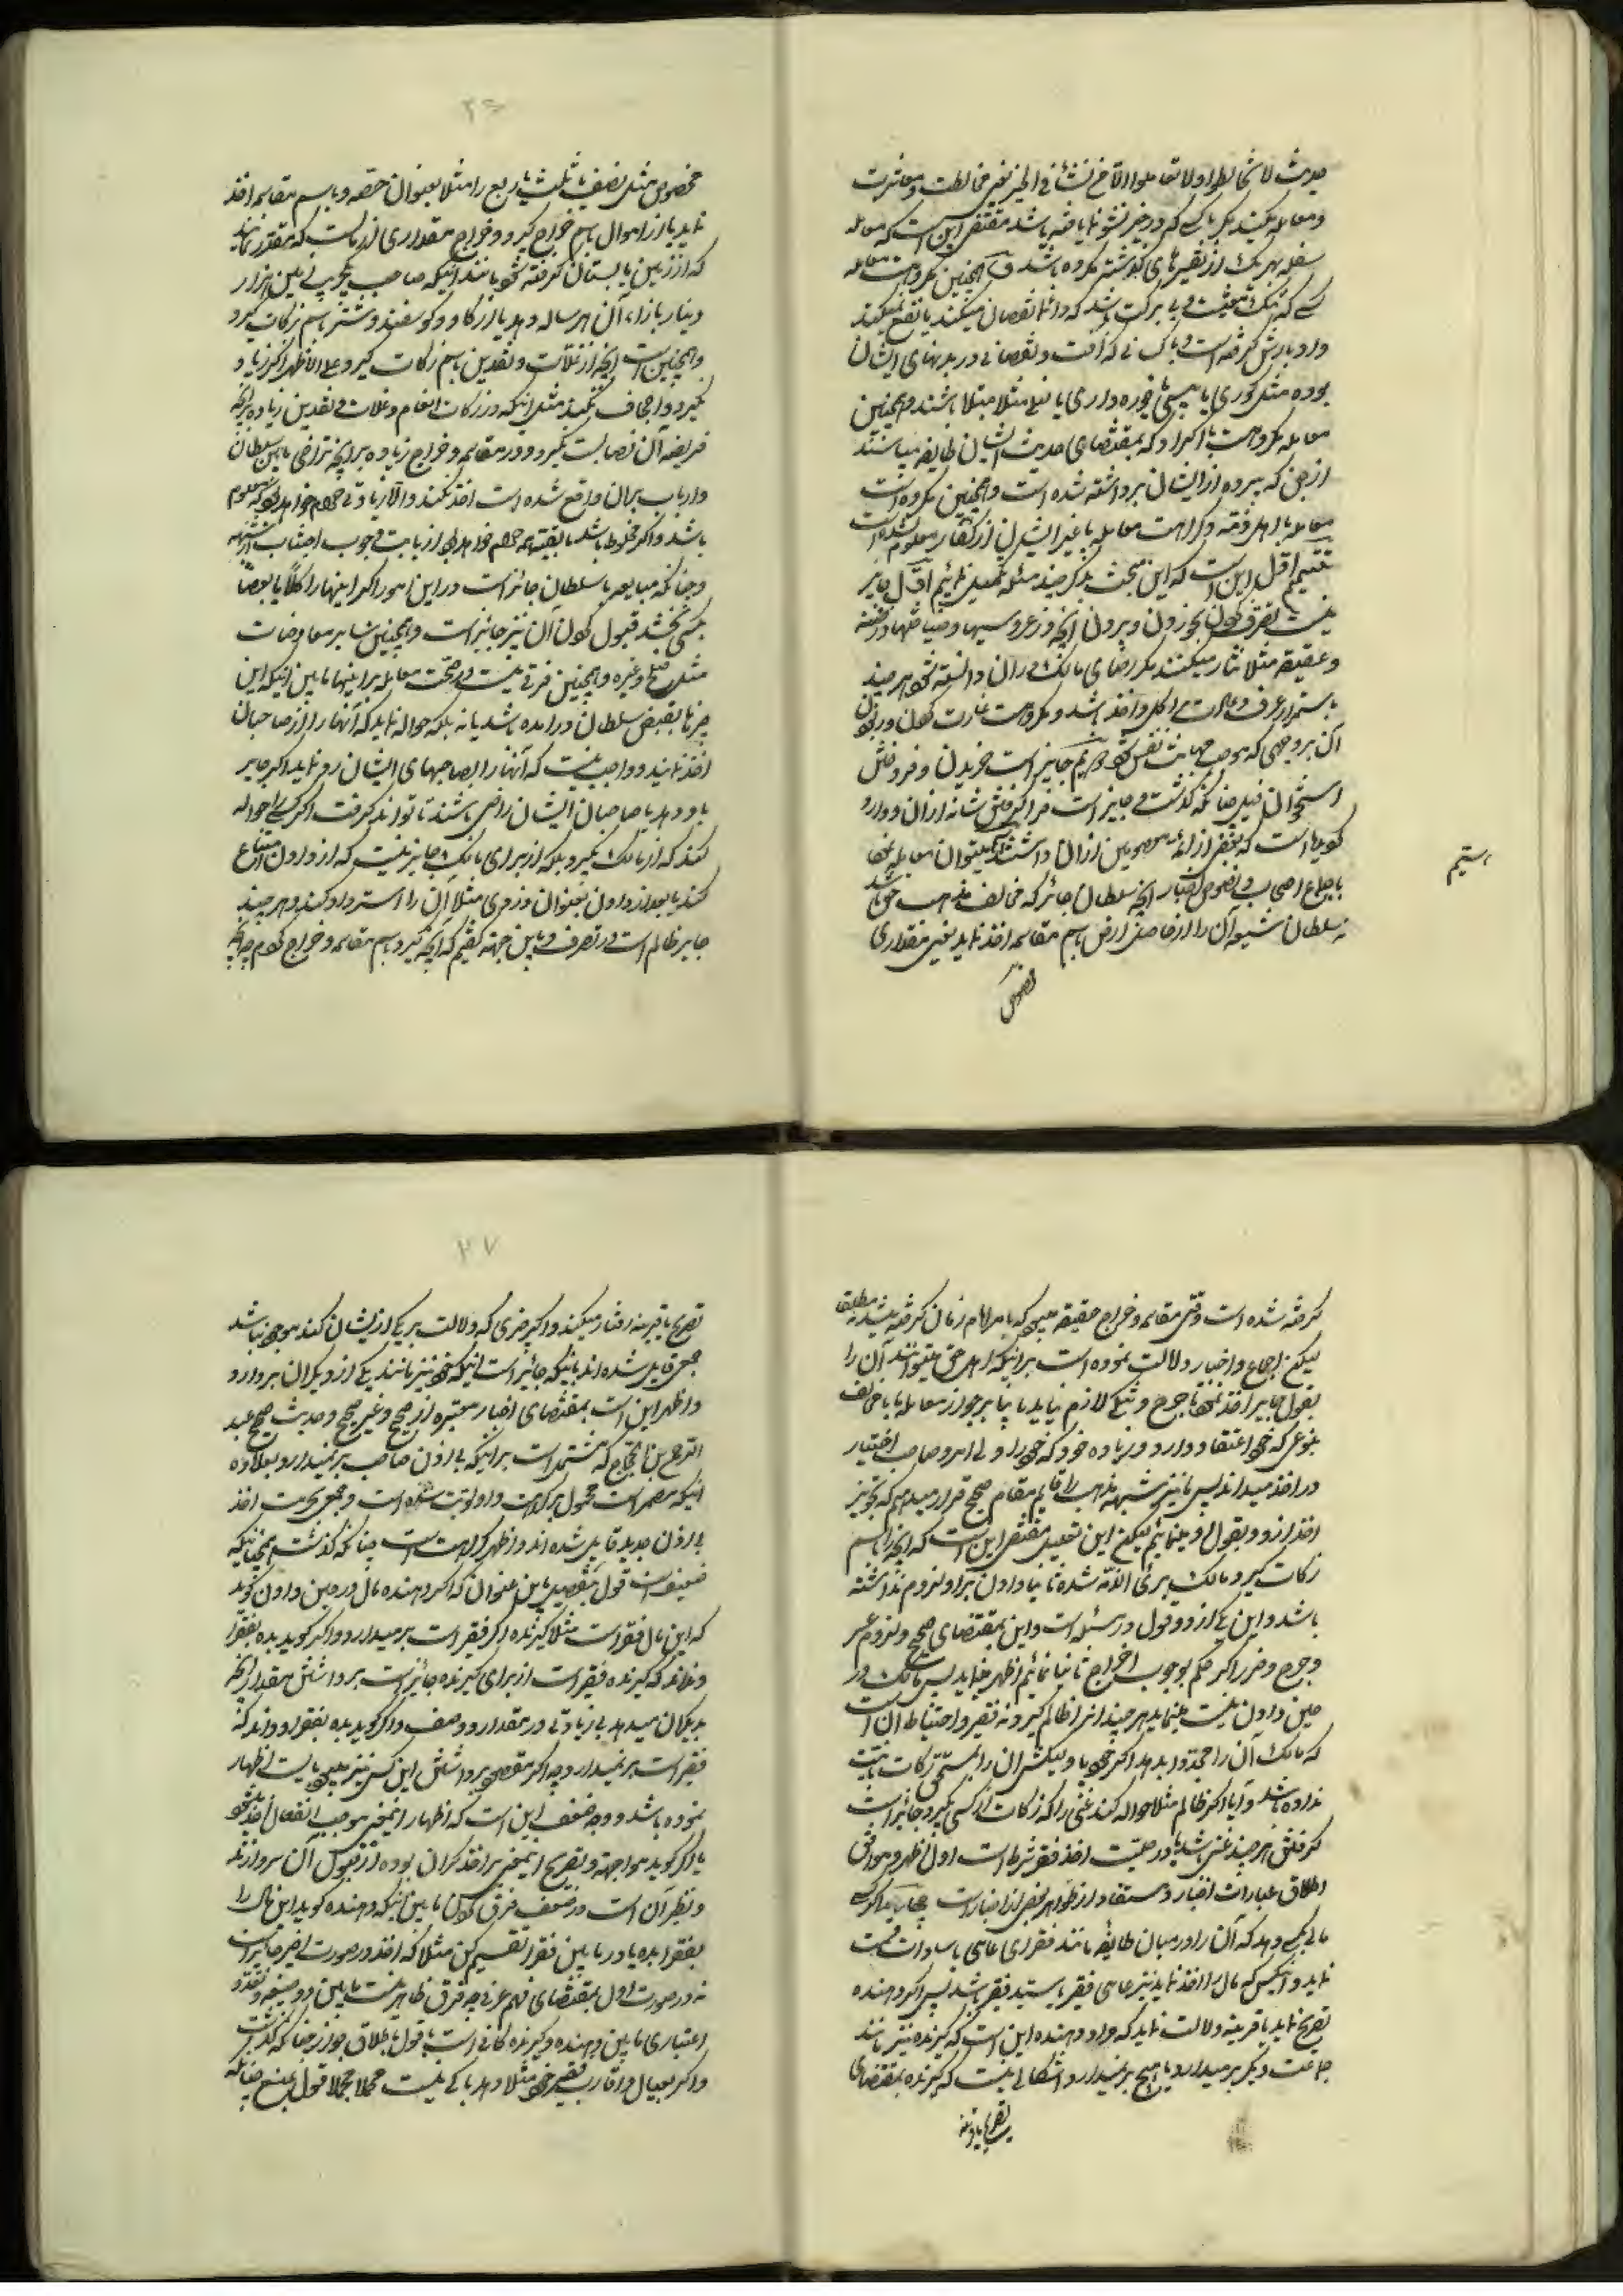 حدیث لا تخالطوا ولا تعاملوا الا من نشأ فی الخیر یعنی مخالطت و معاشرت
و معامله مکنید مگر با کسی که در خیر نشو نما یافته باشد مقتضی این است که معامله
سفله بهر یک از تفسیرهای گذشته مکروه باشد و همچنین مکروهست معامله
کسی که
دائما نقصان میکنند یا نفع نمیکند
و با کسانی که آفت و نقصانی در بدنهای ایشان
بوده مثل کوری یا پیسی خوره داری یا مثلا مبتلا باشند و همچنین
معامله مکروهست با اکراد که بمقتضای حدیث ایشان طایفه میباشند
از جن که پرده از ایشان برداشته شده است و همچنین مکروه است
معامله با اهل ذمه و کراهت معامله با غیر ایشان از کفار معلوم نشده است
تتمیم اول این است که این مبحث بذکر چند مسئله نمائیم اول جایز
نیست تصرف کردن بخوردن و بردن آنچه در عروسیها و ضیافتها و
و عقیقه مثلا نثار میکنند مگر رضای مالک در آن دانسته شود هر چند
باستمرار عرف و عادت اکل و اخذ باشد و مکروهست غارت کردن و ربودن
آن بر وجهی که موجب مهانت نفس شود دویم جایز است خریدن و فروختن
استخوان فیل چنانکه گذشت و جایز است فرا گرفتن شانه از آن و وارد
گردیده است که بعضی از ائمه معصومین از آن داشتند سیم میتوان معامله نمود
باجماع اصحاب و نصوص اخبار آنچه سلطان جائر که مخالف مذهب حق باشد
نه سلطان شیعه آن را از حاصل ارض باسم مقاسمه اخذ نماید یعنی مقداری
مخصوص
سیم
۲۶
مخصوص مثل نصف یا ثلث یا ربع را مثلا بعنوان حصه و باسم مقاسمه اخذ
نماید یا از اموال باسم خراج گیرد و خراج مقداری از زر است که مقرر نمایند
که از زمین یا بستان گرفته شود مانند اینکه صاحب
دینار بازاء آن هر ساله دهد یا از گاو و گوسفند و شتر باسم زکات گیرد
و همچنین است آنچه از غلات و نقدین باسم زکات گیرد علی الاظهر اگر زیاد
نگیرد و اجحاف نکند مثل اینکه در زکات انعام و غلات و نقدین زیاده بر آنچه
فریضه آن نصابست نگیرد و در مقاسمه و خراج زیاده بر آنچه تراضی مابین سلطان
و ارباب بر آن واقع شده است اخذ نکند و الا زیادتی حرام خواهد بود اگر معلوم
باشد و اگر مخلوط باشد بقیه همه حرام خواهد بود از بابت وجوب اجتناب از مشتبه
و چنانکه مبایعه با سلطان جائز است در این امور اگر اینها را کلا یا بعضا
بکسی بخشد قبول کردن آن نیز جایز است و همچنین سایر معاوضات
مثل صلح و غیره و همچنین فرقی نیست در صحت معامله بر اینها مابین اینکه این
چیزها بقبض سلطان درآمده باشد یا نه بلکه حواله نماید که آنها را از صاحبان
اخذ نمایند و واجب نیست که آنها را بصاحبهای ایشان رد نماید اگر جایر
باو دهد یا صاحبان ایشان راضی باشند تا تواند گرفت اگر کسی را حواله
کند که از مالک بگیرد بلکه از برای مالک جایز نیست که از دادن امتناع
کند یا بعد از دادن بعنوان دزدی مثلا آن را استرداد کند و هر چند
جایر ظالم است در تصرف و باین جهته گفتیم که آنچه گیرد باسم مقاسمه و خراج
گرفته شده است وقتی مقاسمه و خراج حقیقه میبود که بامر امام زمان گرفته میشد نه مطلقا
لیکن اجماع و اخبار دلالت نموده است بر اینکه اهل حق میتوانند آن را
بقول جایر اخذ نمود تا حرج و لازم نیاید یا بنا بر جواز معامله با مخالف
بنوعی که خود اعتقاد دارد و زیاده خود که خود را ولی امر و صاحب اختیار
در اخذ میداند پس ما نیز شبهه مذهب را قایم مقام صحیح قرار میدهیم که تجویز
اخذ از او و قبول او مینمائیم لیکن این تعبیر مقتضی این است که آنچه را باسم
زکات گیرد مالک بریء الذمه شده ثانیا دادن بر او لزوم نداشته
باشد و این یکی از دو قول در مسئله است و این بمقتضای صحیح و لزوم عسر
و حرج و ضرر اگر حکم بوجوب اخراج ثانیا نمائیم اظهر میباشد پس مالک در
حین دادن نیت مینماید هر چند از او ظالم گیرد نه فقیر و احتیاط آن است
که مالک آن را مجددا بدهد اگر
زکات نیت
نداده باشد و آیا اگر ظالم مثلا حواله کند غنی را که زکات از کسی بگیرد جائز است
گرفتن هر چند غنی باشد یا در حلیت اخذ فقر شرط است اول اظهر و موافق
اطلاق عبارات اخبار و مستفاد از ظواهر بعض از اخبار است چهارم اگر کسی
مالی بکسی دهد که آن را در میان طایفه مانند فقرای عامی یا سادات قسمت
نماید و آنکس که مال را اخذ نماید نیز عامی فقیر یا سید فقیر باشد پس اگر دهنده
تصریح نماید یا قرینه دلالت نماید که مراد دهنده این است که گیرنده نیز مانند
جماعت دیگر بر میدارد یا هیچ برنمیدارد اشکالی نیست که گیرنده بمقتضای
تصریح یا قرینه
۲۷
تصریح یا قرینه رفتار میکند و اگر چیزی که دلالت بر یکی از ایشان کند موجود نباشد
جمعی قایل شده اند باینکه جائز است اینکه خود نیز مانند یکی از دیگران بردارد
و اظهر این است بمقتضای اخبار معتبره از صحیح و غیر صحیح و حدیث صحیح عبد
الرحمن بن الحجاج که مشتمل است بر اینکه بی اذن صاحب بر نمیدارد بعلاوه
اینکه مضمر است محمول بر کراهت و اولویت شده است و جمعی بحرمت اخذ
بی اذن جدید قایل شده اند و اظهر کراهت است چنانکه گذشت همچنانکه
ضعیف است قول بتفصیل باین عنوان که اگر دهنده مال در حین دادن گوید
که این مال فقرا است مثلا گیرنده اگر فقیر است بر میدارد و اگر گوید بده بفقرا
و نداند که گیرنده فقیر است از برای گیرنده جائز است برداشتن مقدار آنچه
بدیگران میدهد بی زیادتی در مقدار و وصف و اگر گوید بده بفقرا و داند که
فقیر است بر نمیدارد چه اگر مقصود برداشتن این کس نیز میبود بایست اظهار
نموده باشد و وجه ضعف این است که
یا اگر گوید مواجهة و تصریح اینمعنی بر اخذ گران بوده از قبول آن سر وا زند
و نظیر آن است در ضعف فرق کردن مابین اینکه دهنده گوید این مال را
بفقرا بده یا در مابین فقرا تقسیم کن مثلا که اخذ در صورت اخیر جایز است
نه در صورت اول بمقتضای فهم عرفی چه فرق ظاهر نیست مابین دو صیغه و تعدد
اعتباری مابین دهنده و گیرنده کافی است با قول باطلاق جواز چنانکه گذشت
و اگر بعیال و اقارب فقیر خود مثلا دهد باکی نیست